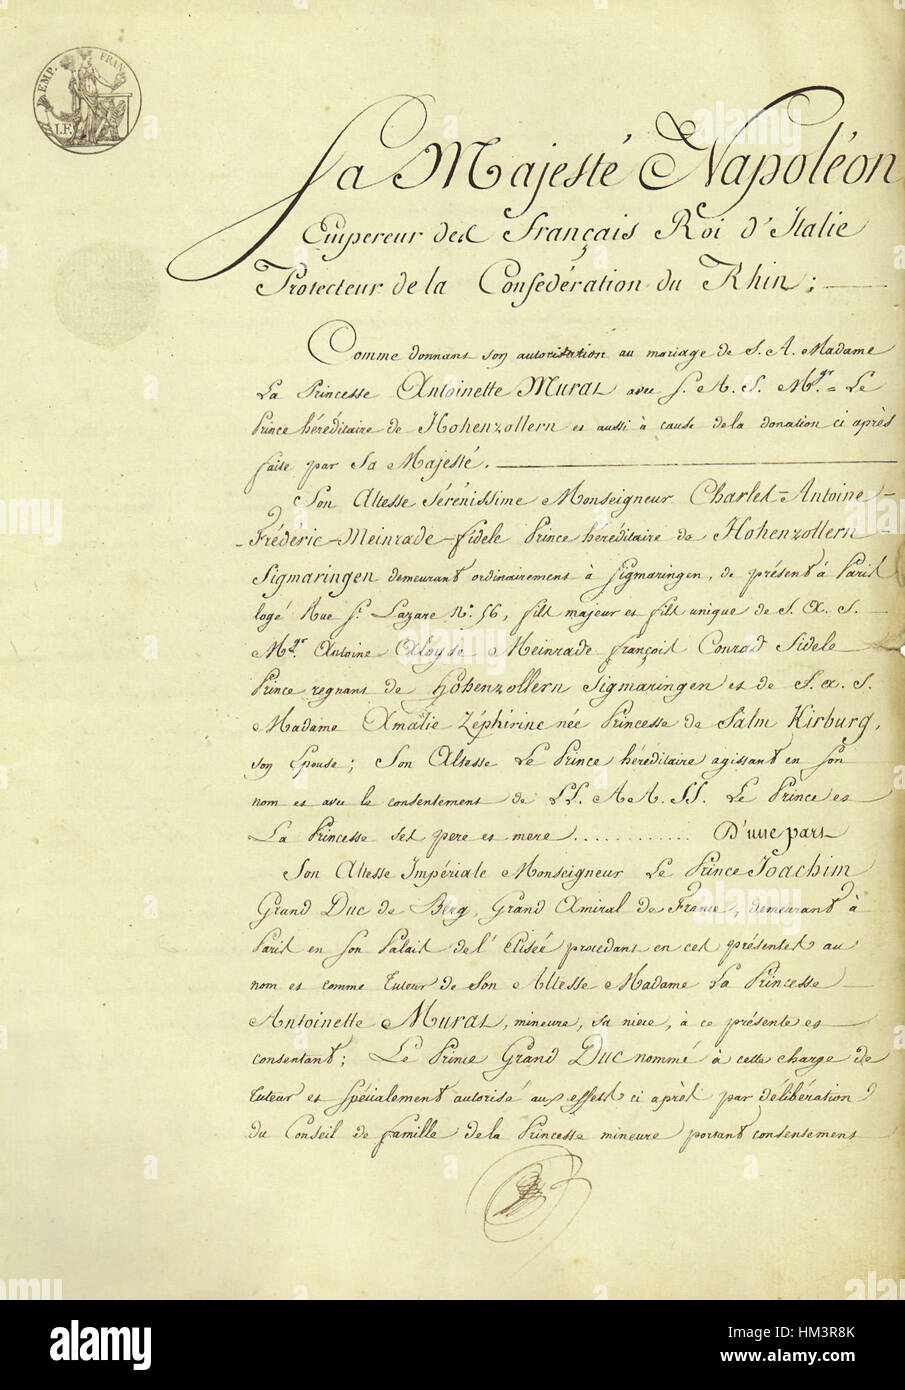 EMP. FRAN.
Sa Majesté Napoléon
Empereur des Français Roi d'Italie
Protecteur de la Confédération du Rhin;
Comme donnant son autorisation au mariage de S. A. Madame
La Princesse Antoinette Murat avec S. A. S. Mgr. Le
Prince héréditaire de Hohenzollern et aussi à cause de la donation ci après
faite par Sa Majesté.
Son Altesse Sérénissime Monseigneur Charles-Antoine-
Frédéric-Meinrade-fidele Prince héréditaire de Hohenzollern-
Sigmaringen demeurant ordinairement à Sigmaringen, de présent à Paris
logé Rue St. Lazare No. 56, fils majeur et fils unique de S. A. S.
Mgr. Antoine Aloyse Meinrade françois Conrad Fidele
Prince regnant de Hohenzollern Sigmaringen et de S. A. S.
Madame Amalie Zéphirine née Princesse de Salm Kirburg,
son Epouse; Son Altesse Le Prince héréditaire agissant en son
nom et avec le consentement de LL. AA. SS. Le Prince et
La Princesse ses pere et mere ............ D'une part
Son Altesse Impériale Monseigneur Le Prince Joachim
Grand Duc de Berg, Grand Amiral de France, demeurant à
Paris en son Palais de l'Elisée procedant en ces présentes au
nom et comme tuteur de Son Altesse Madame La Princesse
Antoinette Murat, mineure, sa niece, à ce présente et
consentant; Le Prince Grand Duc nommé à cette charge de
tuteur et spécialement autorisé aux effets ci après par délibération
du Conseil de famille de la Princesse mineure portant consentement
alamy
HM3R8K
www.alamy.com